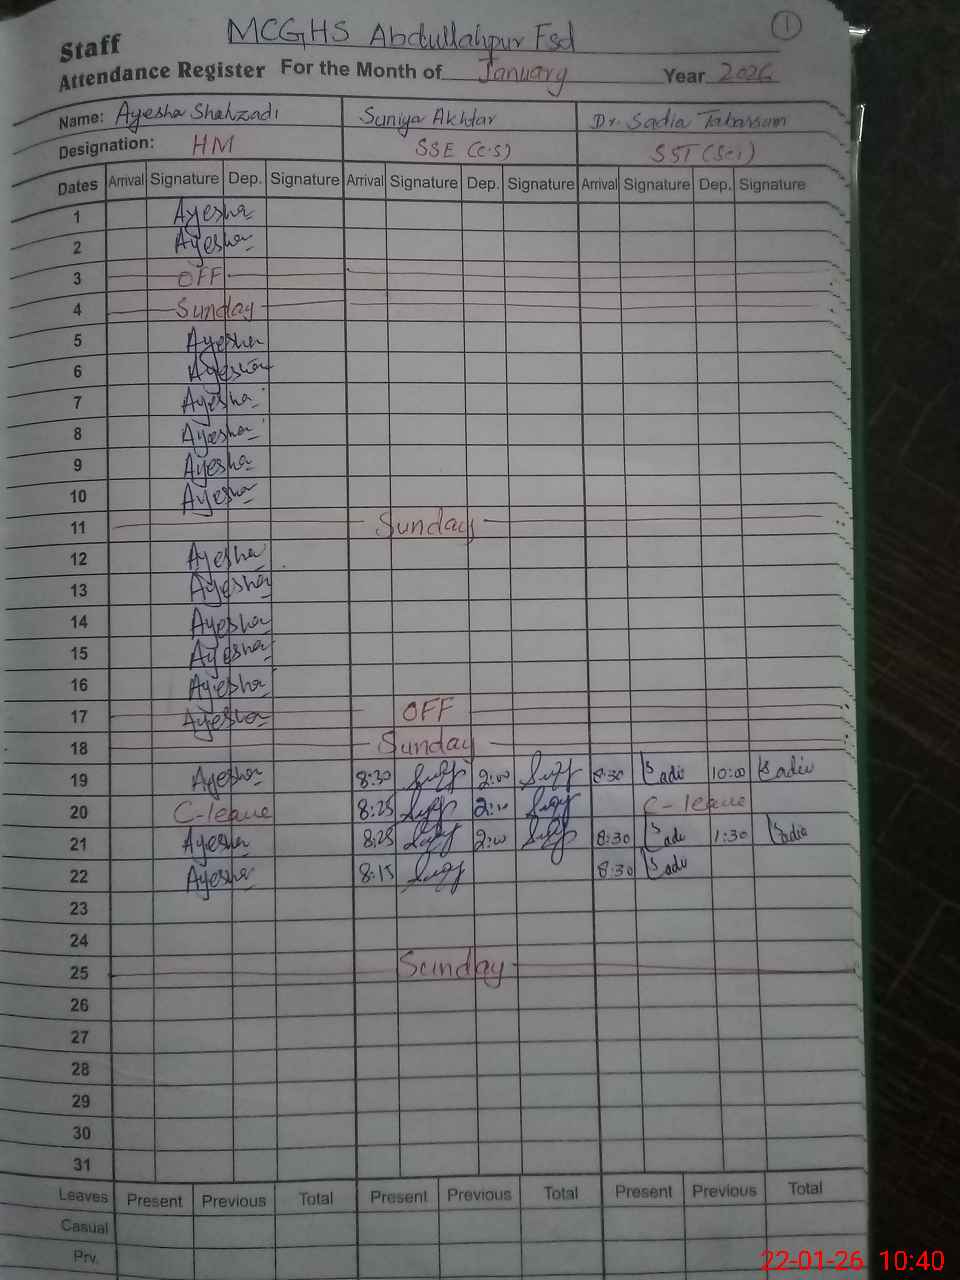 MCGHS Abdullahpur Fsd
1
Staff
Attendance Register For the Month of January Year 2026
Name: Ayesha Shahzadi Suniya Akhtar Dr. Sadia Tabassum
Designation: HM SSE (C.S) SST (Sci)
Dates Arrival Signature Dep. Signature Arrival Signature Dep. Signature Arrival Signature Dep. Signature
1 Ayesha
2 Ayesha
3 OFF
4 Sunday
5 Ayesha
6 Ayesha
7 Ayesha
8 Ayesha
9 Ayesha
10 Ayesha
11 Sunday
12 Ayesha
13 Ayesha
14 Ayesha
15 Ayesha
16 Ayesha
17 Ayesha OFF
18 Sunday
19 Ayesha 8:30 2:00 8:30 Sadia 10:00 Sadia
20 C-leave 8:25 2:10 C-leave
21 Ayesha 8:25 2:00 8:30 Sadia 1:30 Sadia
22 Ayesha 8:15 8:30 Sadia
23
24
25 Sunday
26
27
28
29
30
31
Leaves Present Previous Total Present Previous Total Present Previous Total
Casual
Prv.
22-01-26 10:40